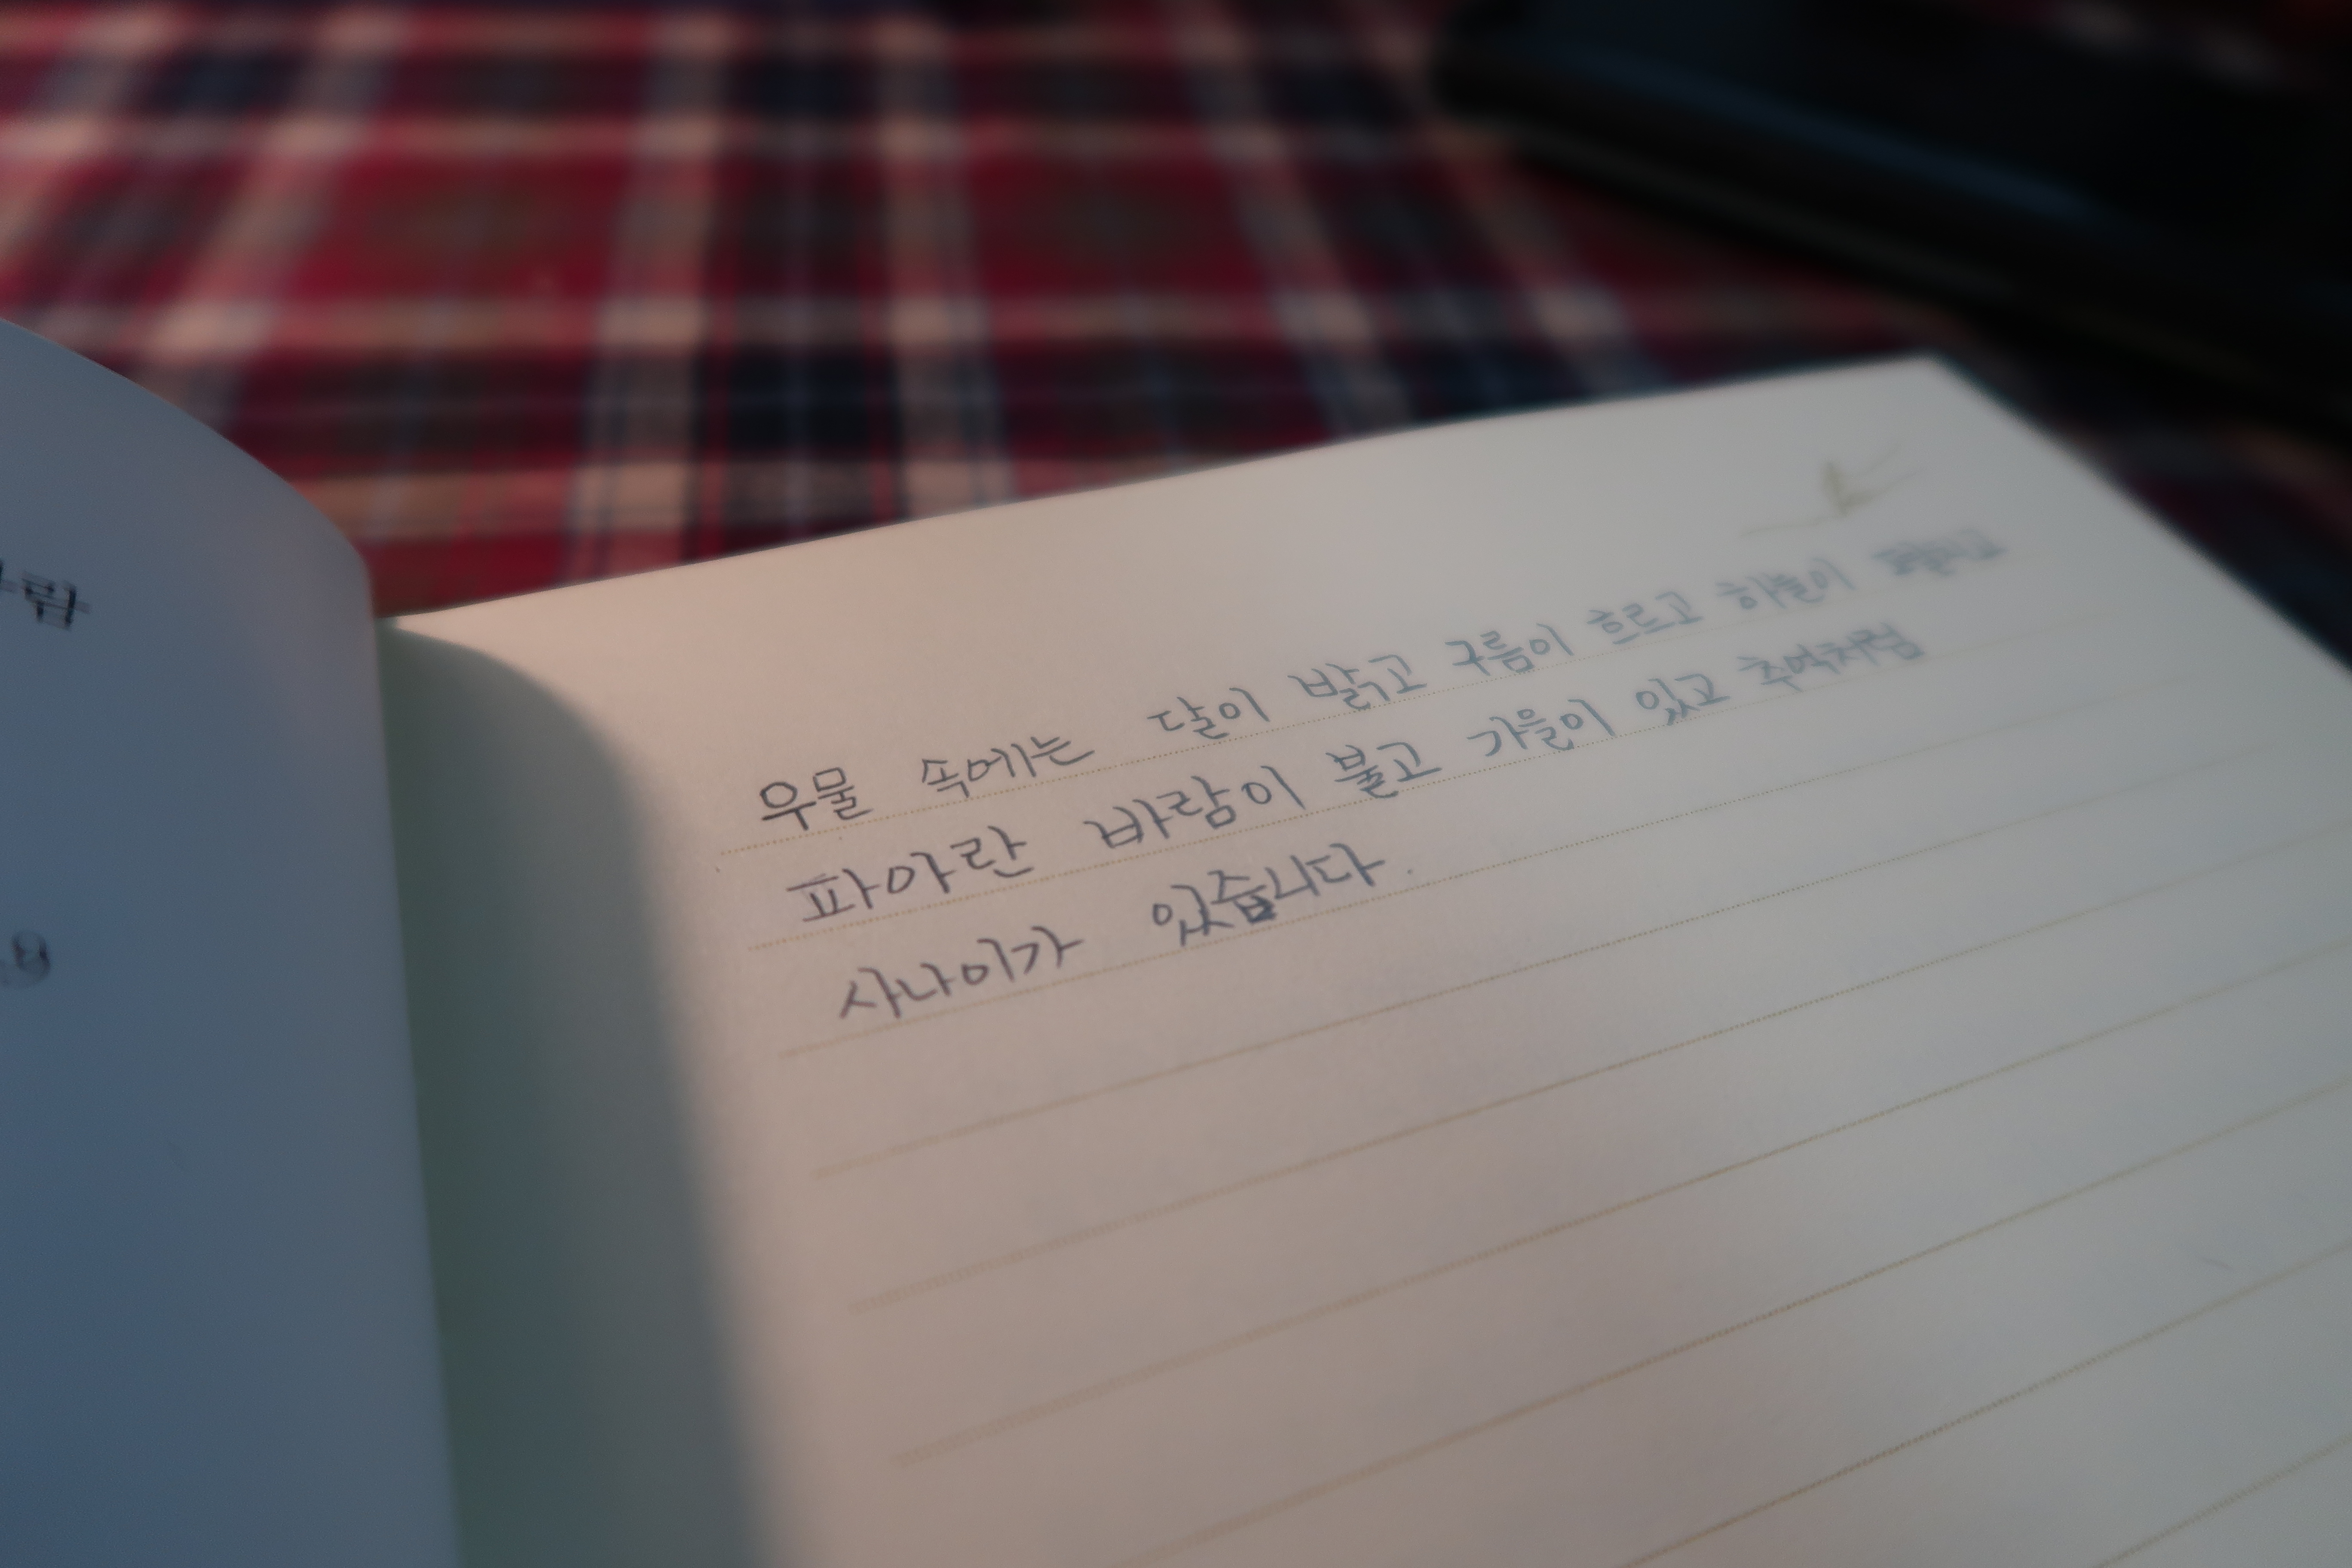 우물 속에는 달이 밝고 구름이 흐르고 하늘이 펼치고
파아란 바람이 불고 가을이 있고 추억처럼
사나이가 있습니다.